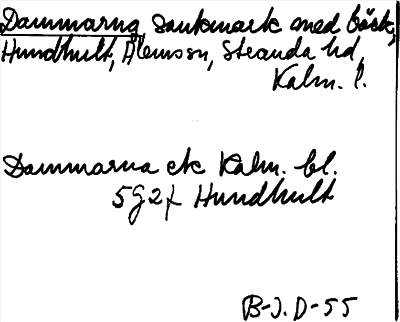 Dammarna, sankmark med bäck,
Hundhult, Ålemsm, Stranda hd,
Kalm. l.
Dammarna ek Kalm. bl.
5g2f Hundhult
B-J.D-55